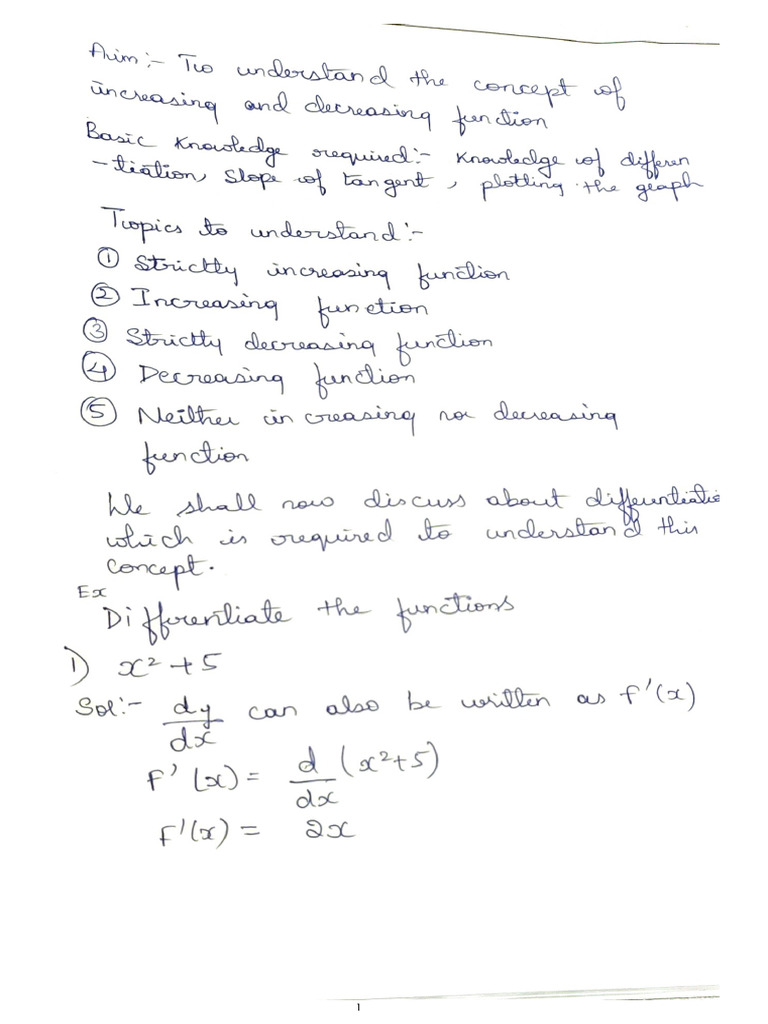 Aim:- To understand the concept of
increasing and decreasing function
Basic Knowledge required:- Knowledge of differen
-tiation, Slope of tangent, plotting the graph
Topics to understand:-
① Strictly increasing function
② Increasing function
③ Strictly decreasing function
④ Decreasing function
⑤ Neither increasing nor decreasing
function
We shall now discuss about differentiatio
which is required to understand this
concept.
Ex
Differentiate the functions
1) x² + 5
Sol:- dy/dx can also be written as f'(x)
f'(x) = d/dx (x²+5)
f'(x) = 2x
1